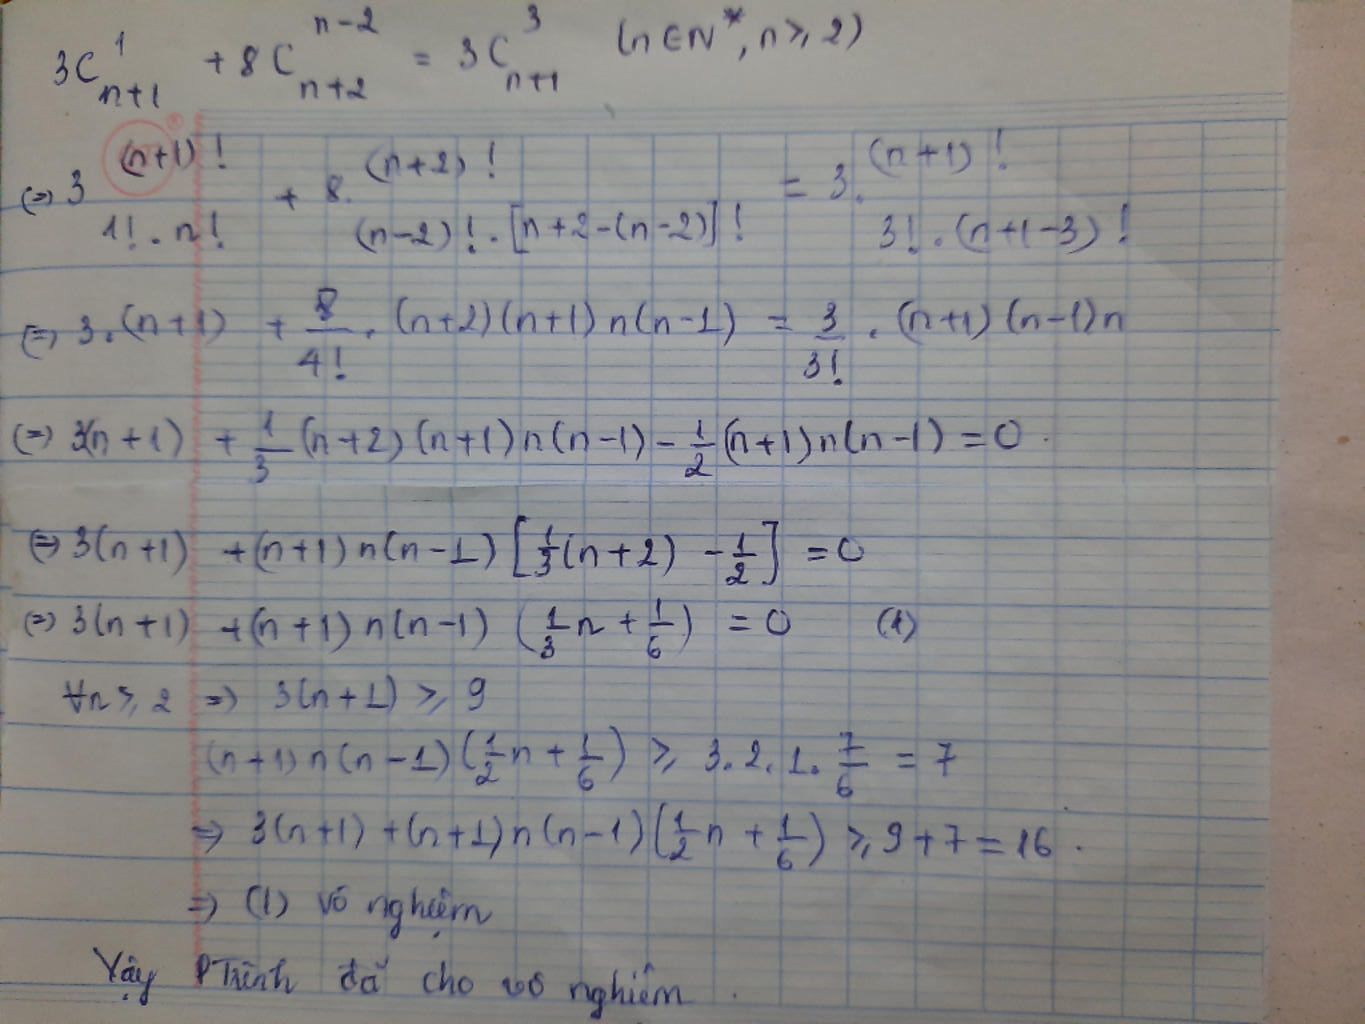 3C^1_{n+1} + 8C^{n-2}_{n+2} = 3C^3_{n+1} (n ∈ N*, n ⩾ 2)
(=) 3 (n+1)! / 1!.n! + 8. (n+2)! / (n-2)!.[n+2-(n-2)]! = 3. (n+1)! / 3!.(n+1-3)!
(=) 3.(n+1) + 8/4! . (n+2)(n+1)n(n-1) = 3/3! . (n+1)(n-1)n
(=) 3(n+1) + 1/3 (n+2)(n+1)n(n-1) - 1/2 (n+1)n(n-1) = 0.
(=) 3(n+1) + (n+1)n(n-1) [1/3(n+2) - 1/2] = 0
(=) 3(n+1) + (n+1)n(n-1) (1/3 n + 1/6) = 0 (1)
∀n ⩾ 2 => 3(n+1) ⩾ 9
(n+1)n(n-1)(1/2 n + 1/6) ⩾ 3.2.1. 7/6 = 7
=> 3(n+1) + (n+1)n(n-1)(1/2 n + 1/6) ⩾ 9+7 = 16.
=> (1) vô nghiệm
Vậy PTrình đã cho vô nghiệm.